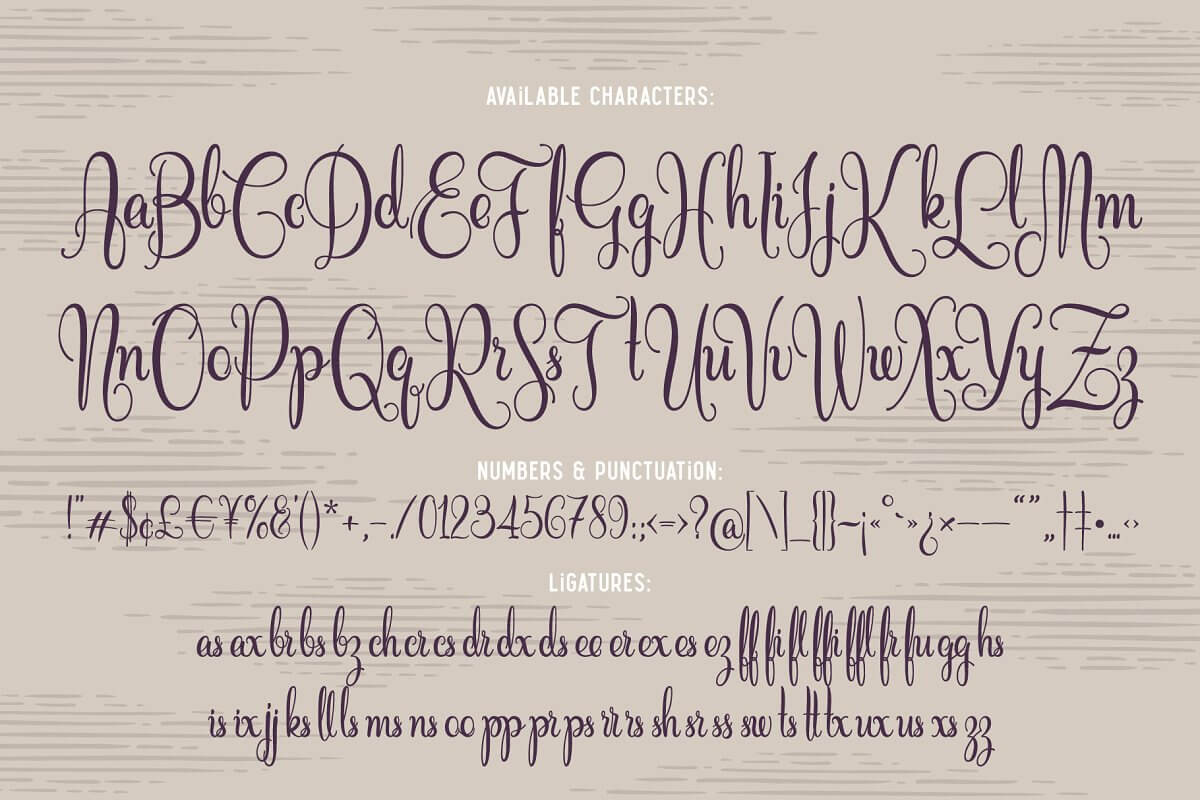 AVAiLABLE CHARACTERS:
AaBbCcDdEeFfGgHhIiJjKkLlMm
NnOoPpQqRrSsTtUuVvWwXxYyZz
NUMBERS & PUNCTUATiON:
!"#$¢£€¥%&'()*+,-./0123456789:;<=>?@[\]_{|}~¡«°`»¿×–—“”„†‡•…‹›
LiGATURES:
as ax br bs bz ch cr cs dr dx ds ee er ex es ez ff fi fl ffi ffl fr fu gg hs
is ix jj ks ll ls ms ns oo pp pr ps rr rs sh sr ss sw ts tt tx ux us xs zz